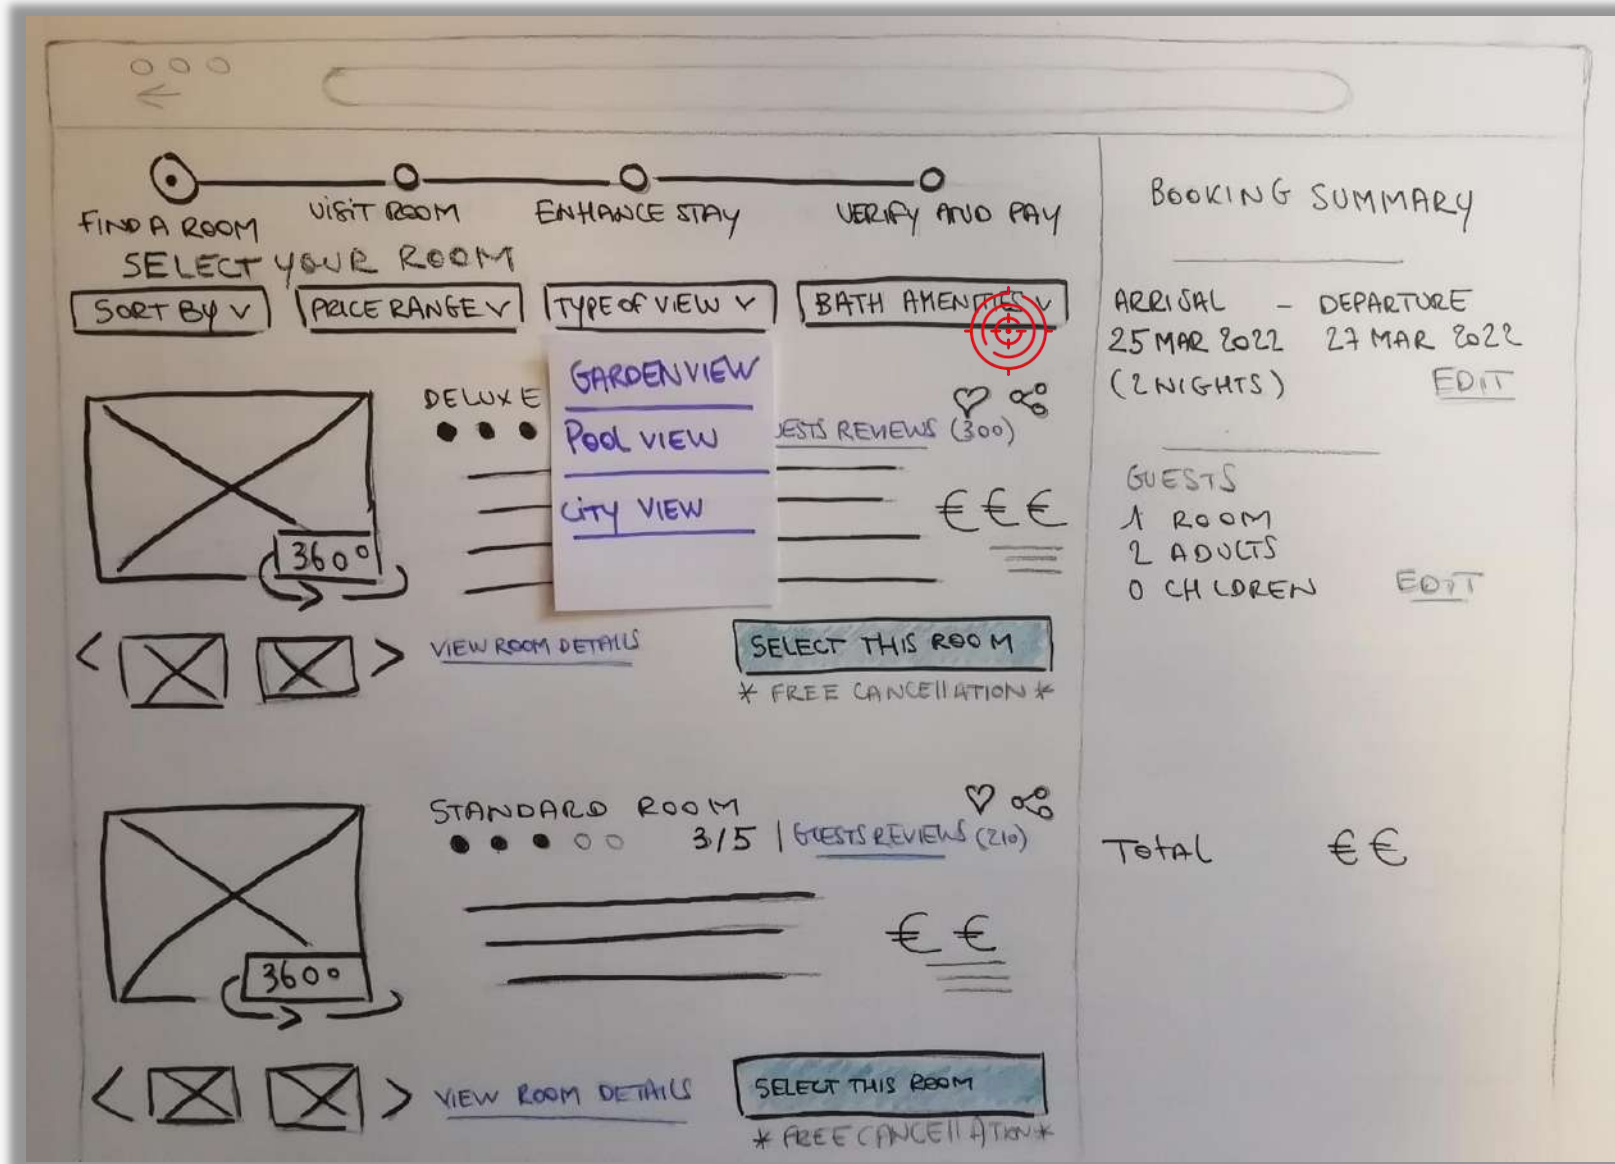 FIND A ROOM
VISIT ROOM
ENHANCE STAY
VERIFY AND PAY
SELECT YOUR ROOM
SORT BY
PRICE RANGE
TYPE OF VIEW
BATH AMENITIES
GARDEN VIEW
POOL VIEW
CITY VIEW
DELUXE
ESTS REVIEWS (300)
€€€
360°
VIEW ROOM DETAILS
SELECT THIS ROOM
* FREE CANCELLATION *
STANDARD ROOM
3/5 | GUESTS REVIEWS (210)
€€
360°
VIEW ROOM DETAILS
SELECT THIS ROOM
* FREE CANCELLATION *
BOOKING SUMMARY
ARRISAL - DEPARTURE
25 MAR 2022 27 MAR 2022
(2 NIGHTS) EDIT
GUESTS
1 ROOM
2 ADULTS
0 CHLDREN EDIT
TOTAL €€